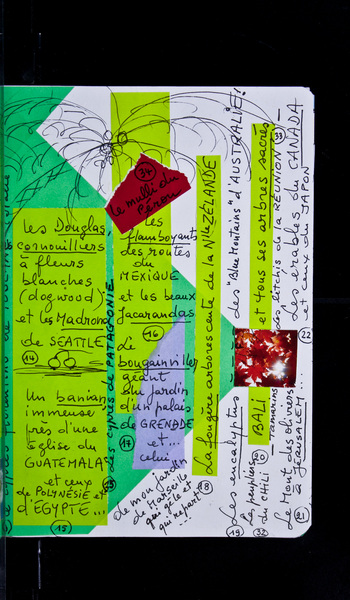 les Douglas
cornouilliers
à fleurs
blanches
(dogwood)
et les Madrona
de SEATTLE
14
Un banian
immense
près d'une
église du
GUATEMALA
et ceux
de POLYNÉSIE et
d'ÉGYPTE...
15
DE PATAGONIE
34
le mulli du
Pérou
les
flamboyants
des routes
du
MEXIQUE
et les beaux
Jacarandas
16
Le
bougainvillier
géant
du jardin
d'un palais
de GRENADE
et...
celui
17
de mon jardin
de Marseille
qui gèle et
qui repart
...
La fougère arborescente de la Nlle ZÉLANDE
18
Les eucalyptus
des "Blue Mountains" d'AUSTRALIE!
19
BALI
et tous ses arbres sacrés
20
Les
du CHILI
32
Tamarins
des litchis de la RÉUNION
33
Le Mont des oliviers
à JÉRUSALEM...
21
Les érables du CANADA
et ceux du JAPON
22